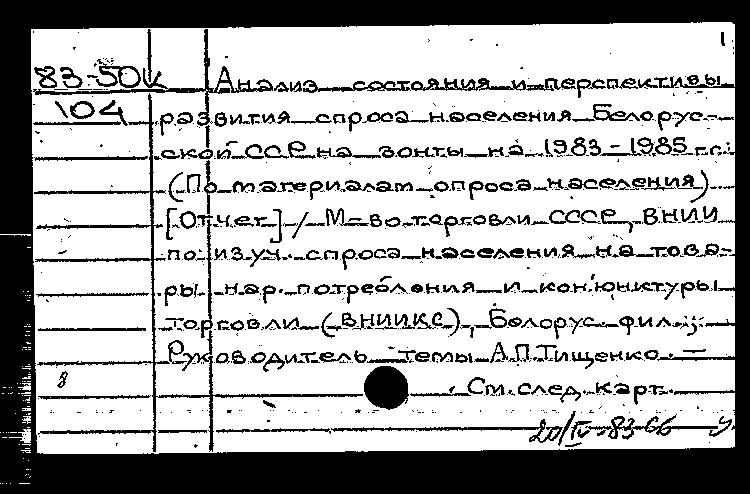 1
83-50к Анализ состояния и перспективы
104 развития спроса населения Белорус-
ской ССР на зонты на 1983-1985 гг.:
(По материалам опроса населения)
[Отчет] / М-во торговли СССР, ВНИИ
по изуч. спроса населения на това-
ры нар. потребления и конъюнктуры
торговли (ВНИИКС), Белорус. фил.;
Руководитель темы А.П.Тищенко. —
8 См. след. карт.
20/IV-83